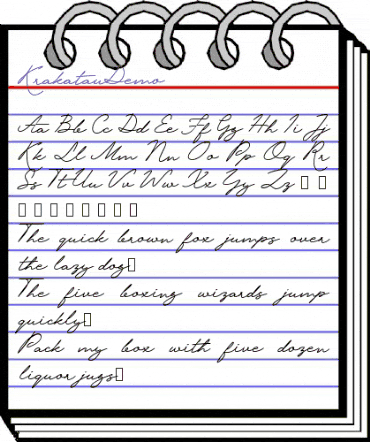 KrakatauDemo
Aa Bb Cc Dd Ee Ff Gg Hh Ii Jj
Kk Ll Mm Nn Oo Pp Qq Rr
Ss Tt Uu Vv Ww Xx Yy Zz □ □
□ □ □ □ □ □ □ □
The quick brown fox jumps over
the lazy dog□
The five boxing wizards jump
quickly□
Pack my box with five dozen
liquor jugs□